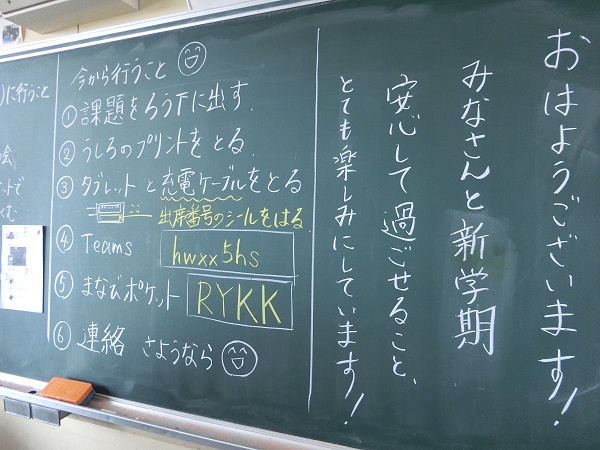 おはようございます！
みなさんと新学期
安心して過ごせること、
とても楽しみにしています！
今から行うこと
① 課題をろう下に出す.
② うしろのプリントをとる.
③ タブレットと充電ケーブルをとる
出席番号のシールをはる
④ Teams hwxx5hs
⑤ まなびポケット RYKK
⑥ 連絡 さようなら
に行うこと
会
ットで
む